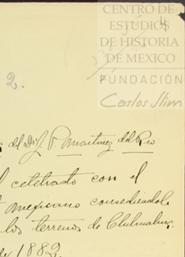 CENTRO DE
ESTUDIOS
DE HISTORIA
DE MEXICO
FUNDACIÓN
Carlos Slim
2.
del Dr J. P. Martinez del Rio
celebrado con el
mexicano concediéndole
los terrenos de
de 1882